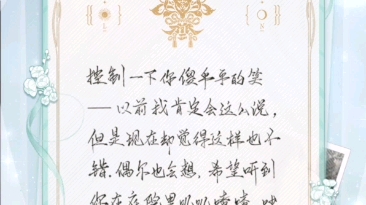 控制一下你傻乎乎的笑
——以前我肯定会这么说，
但是现在却觉得这样也不
错。偶尔也会想，希望听到
你在府院里叽叽喳喳，吵